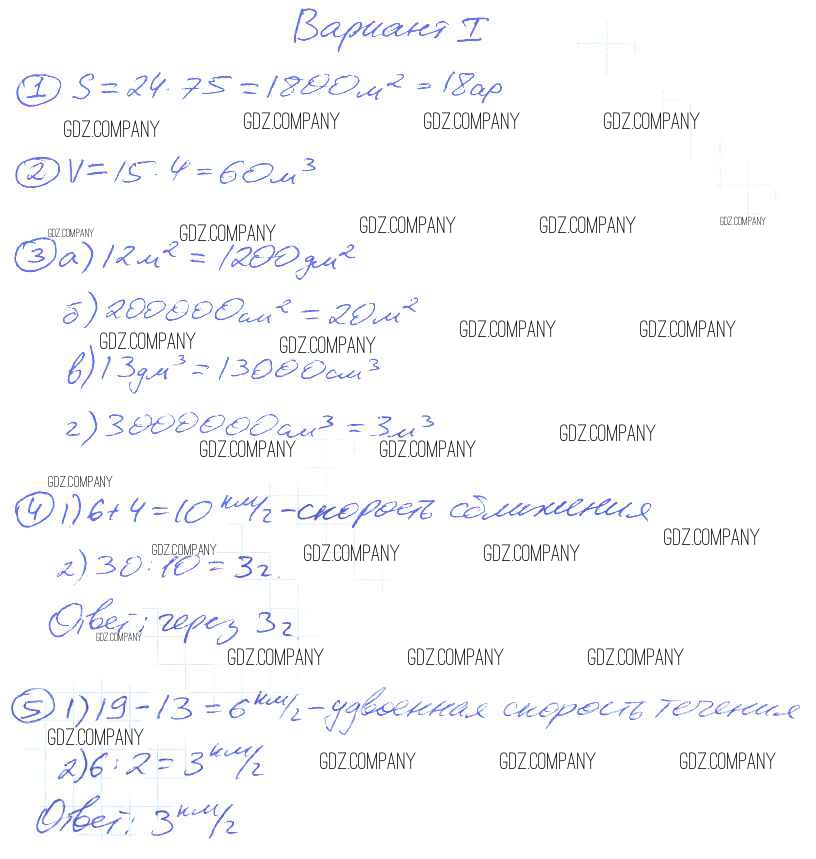 Вариант I
① S = 24 · 75 = 1800 м² = 18 ар
GDZ.COMPANY GDZ.COMPANY GDZ.COMPANY GDZ.COMPANY
② V = 15 · 4 = 60 м³
GDZ.COMPANY GDZ.COMPANY GDZ.COMPANY GDZ.COMPANY GDZ.COMPANY
③ а) 12 м² = 1200 дм²
б) 200000 см² = 20 м²
GDZ.COMPANY GDZ.COMPANY GDZ.COMPANY GDZ.COMPANY
в) 13 дм³ = 13000 см³
г) 3000000 см³ = 3 м³
GDZ.COMPANY GDZ.COMPANY GDZ.COMPANY
GDZ.COMPANY
④ 1) 6 + 4 = 10 км/ч - скорость сближения
GDZ.COMPANY GDZ.COMPANY GDZ.COMPANY GDZ.COMPANY
2) 30 : 10 = 3 ч.
Ответ: через 3 ч.
GDZ.COMPANY
GDZ.COMPANY GDZ.COMPANY GDZ.COMPANY
⑤ 1) 19 - 13 = 6 км/ч - удвоенная скорость течения
GDZ.COMPANY
2) 6 : 2 = 3 км/ч
GDZ.COMPANY GDZ.COMPANY GDZ.COMPANY
Ответ: 3 км/ч